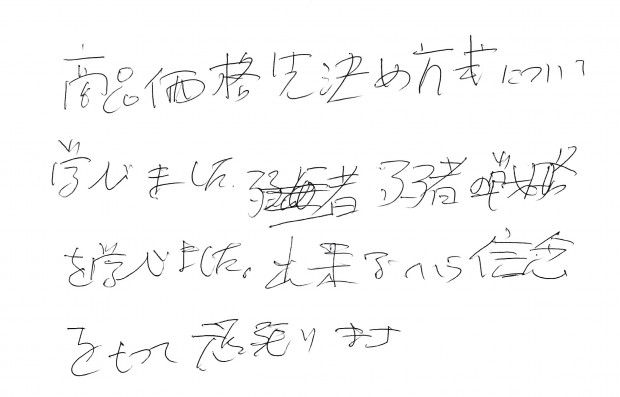 商品価格先決め方式について
学びました 弱者の戦略
を学びました。出来るから信念
をもって頑張ります